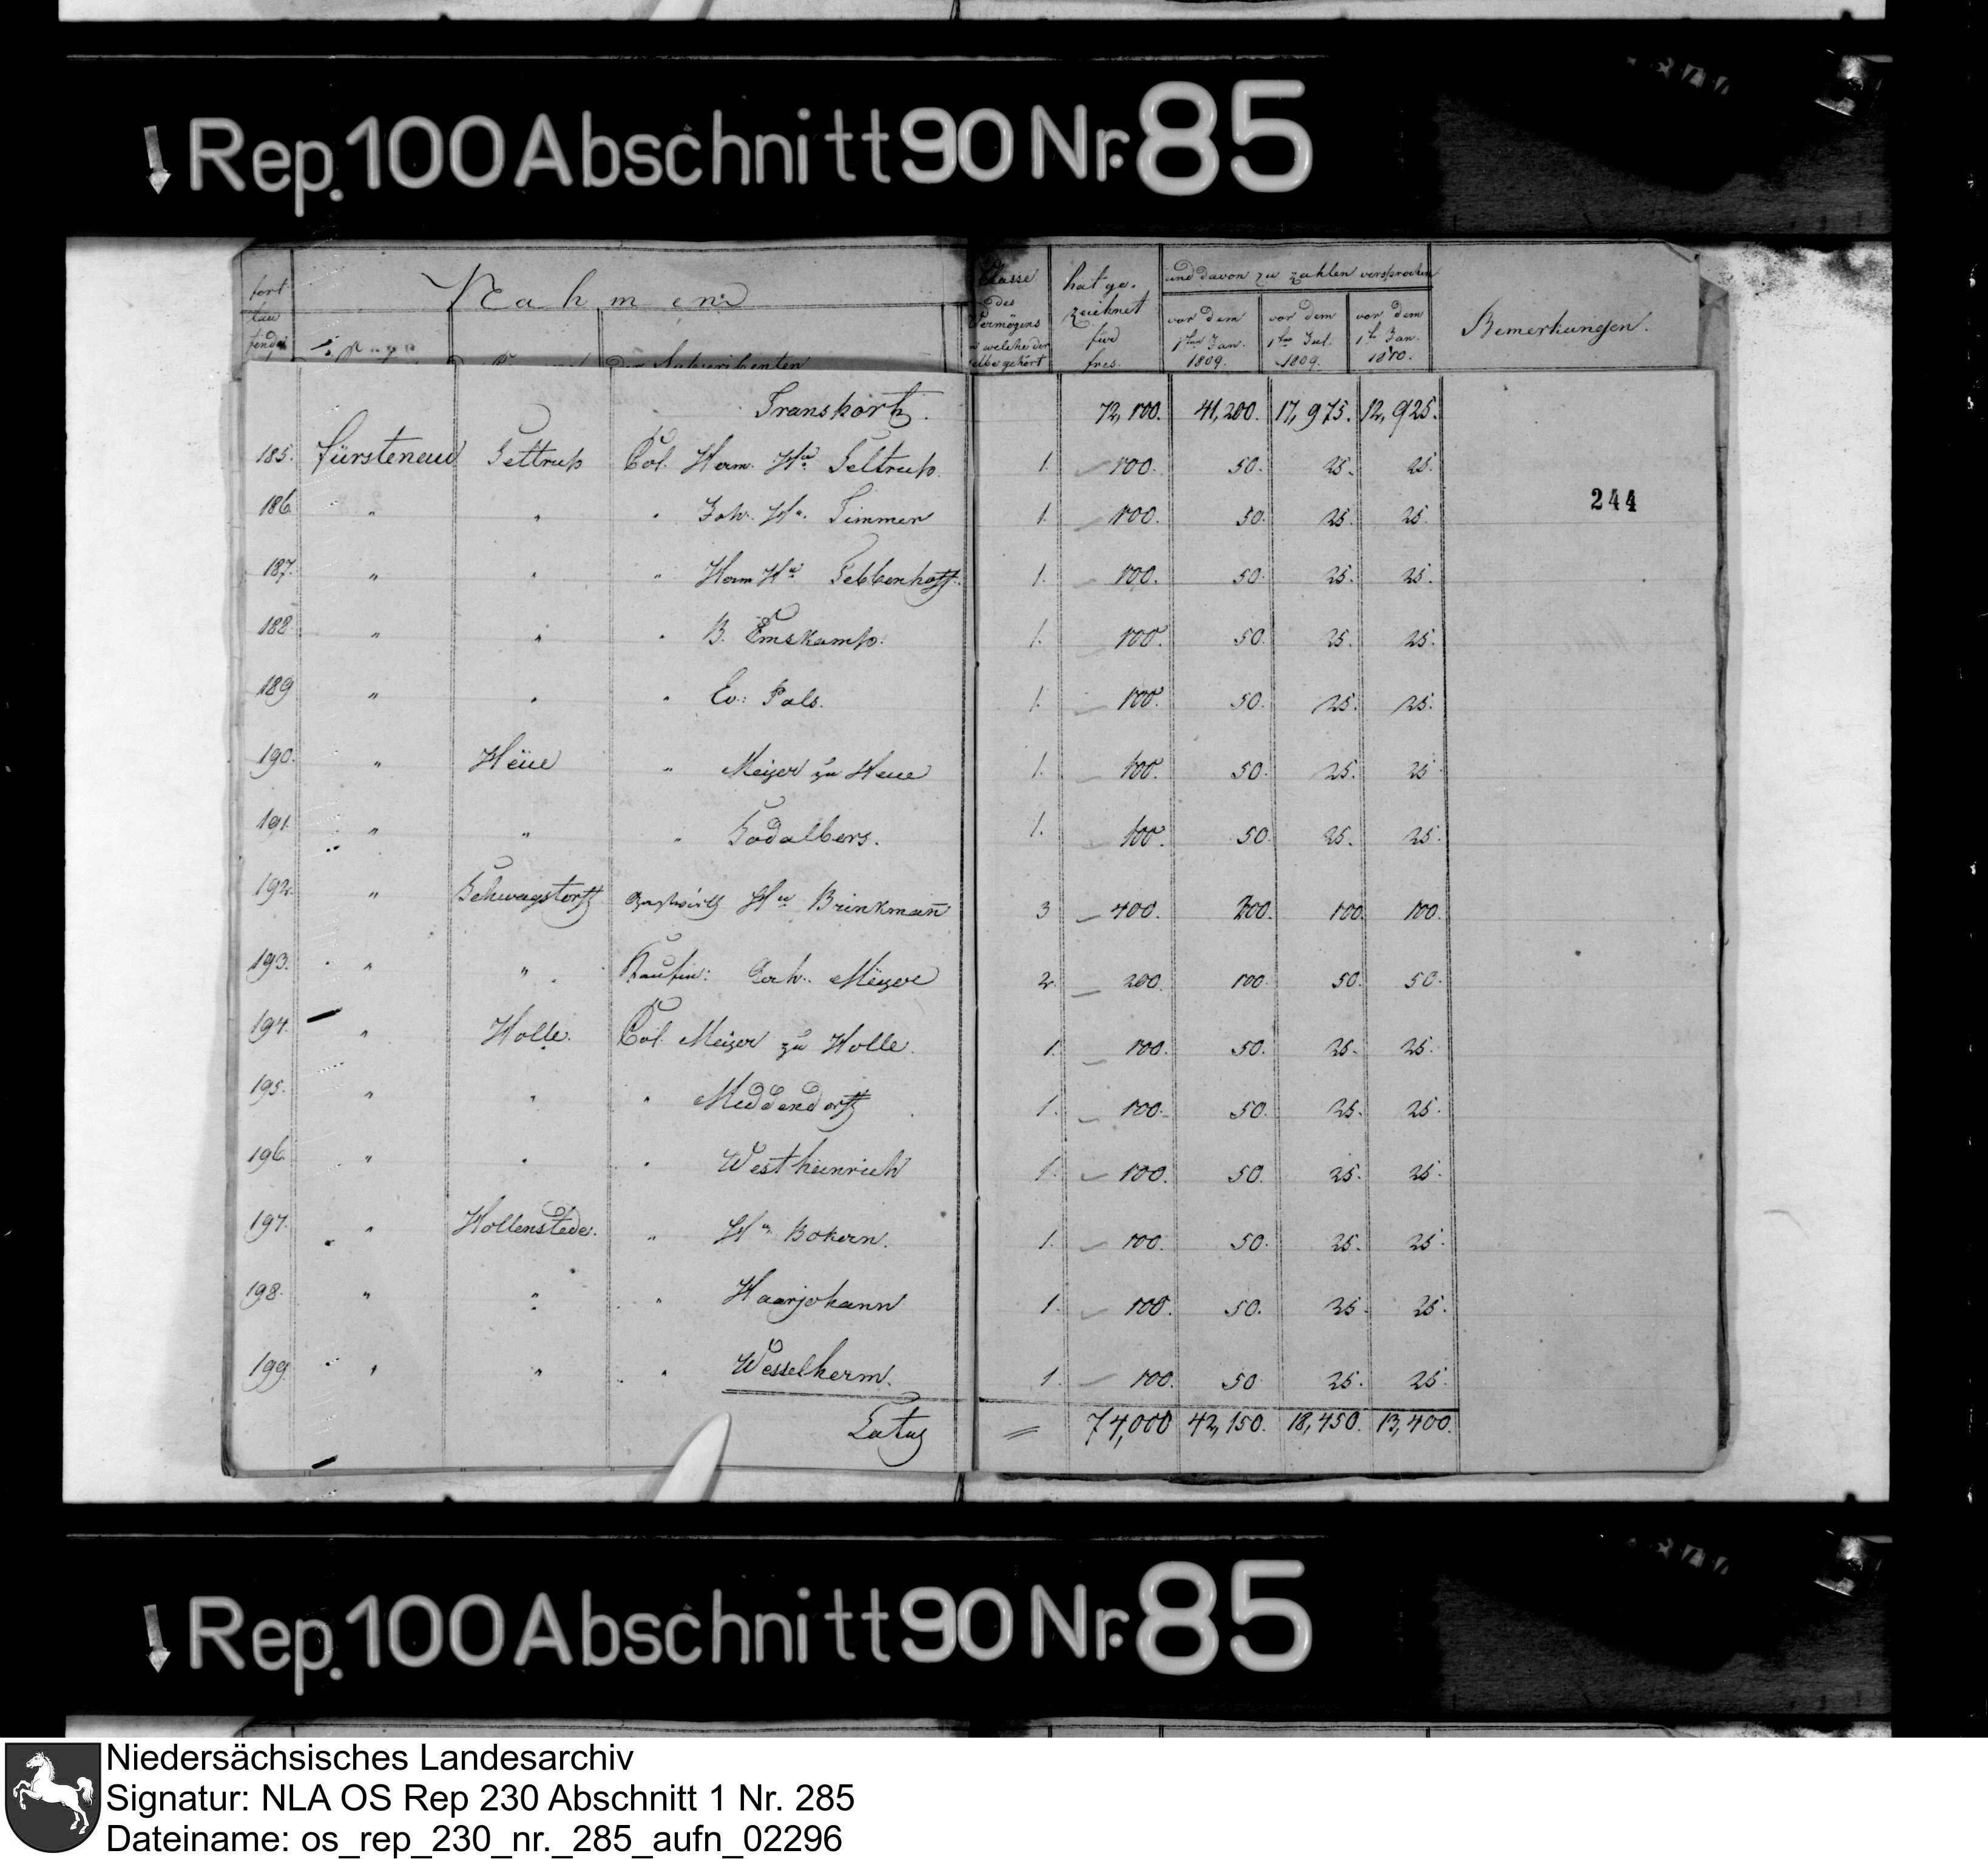 Rep. 100 Abschnitt 90 Nr. 85
fort
lau
fende
Nahmen
der Subscribenten
Classe
des
Vermögens
welche der
selbe gehört
hat ge.
zeichnet
für
frcs.
und davon zu zahlen versprochen
vor dem
1ten Jan.
1809.
vor dem
1ten Jul.
1809.
vor dem
1ten Jan.
1810.
Bemerkungen.
Transport 72,100. 41,200. 17,975. 12,925.
185. Fürstenau Settrup Col. Herm. Hn. Settrup. 1. 100. 50. 25. 25.
244
186. " " " Joh. Hn. Timmer 1. 100. 50. 25. 25.
187. " " " Herm Hn. Tebbenhoff. 1. 100. 50. 25. 25.
188. " " " B. Emskamp. 1. 100. 50. 25. 25.
189 " " " Ev: Pals. 1. 100. 50. 25. 25.
190. " Heüe " Meÿer zu Heue 1. 100. 50. 25. 25
191. " " " Todalbers. 1. 100. 50. 25. 25.
192. " Schwagstorff Gastwirth Hn Brinkmañ 3 400. 200. 100. 100.
193. " " Kaufm: Gerh. Meÿer 2. 200. 100. 50. 50.
194. " Holle. Col. Meÿer zu Holle. 1. 100. 50. 25. 25.
195. " " " Meddendorff 1. 100. 50. 25. 25.
196. " " " Westheinrich 1. 100. 50. 25. 25.
197. " Hollenstede. " Hn. Bokern. 1. 100. 50. 25. 25.
198. " " " Haarjohann 1. 100. 50. 25. 25.
199. " " " Wesselherm. 1. 100. 50 25. 25.
Latus 74,000 42,150. 18,450. 13,400.
Rep. 100 Abschnitt 90 Nr. 85
Niedersächsisches Landesarchiv
Signatur: NLA OS Rep 230 Abschnitt 1 Nr. 285
Dateiname: os_rep_230_nr._285_aufn_02296